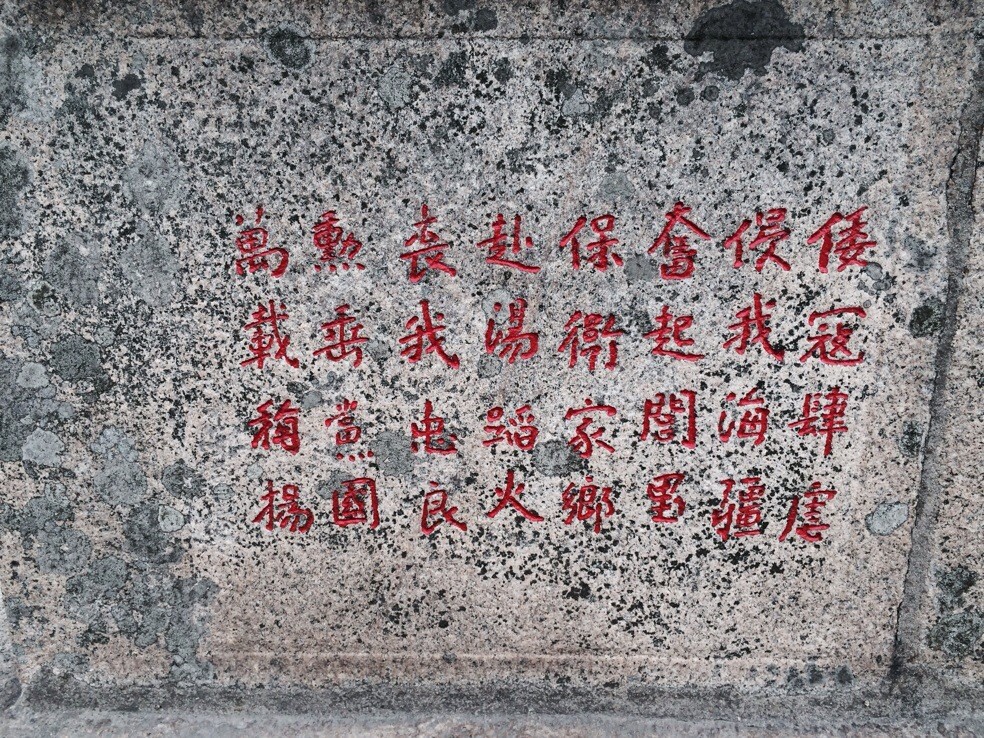 倭寇肆虐
侵我海疆
奮起閭里
保衛家鄉
赴湯蹈火
喪我忠良
勲垂黨國
萬載稱揚